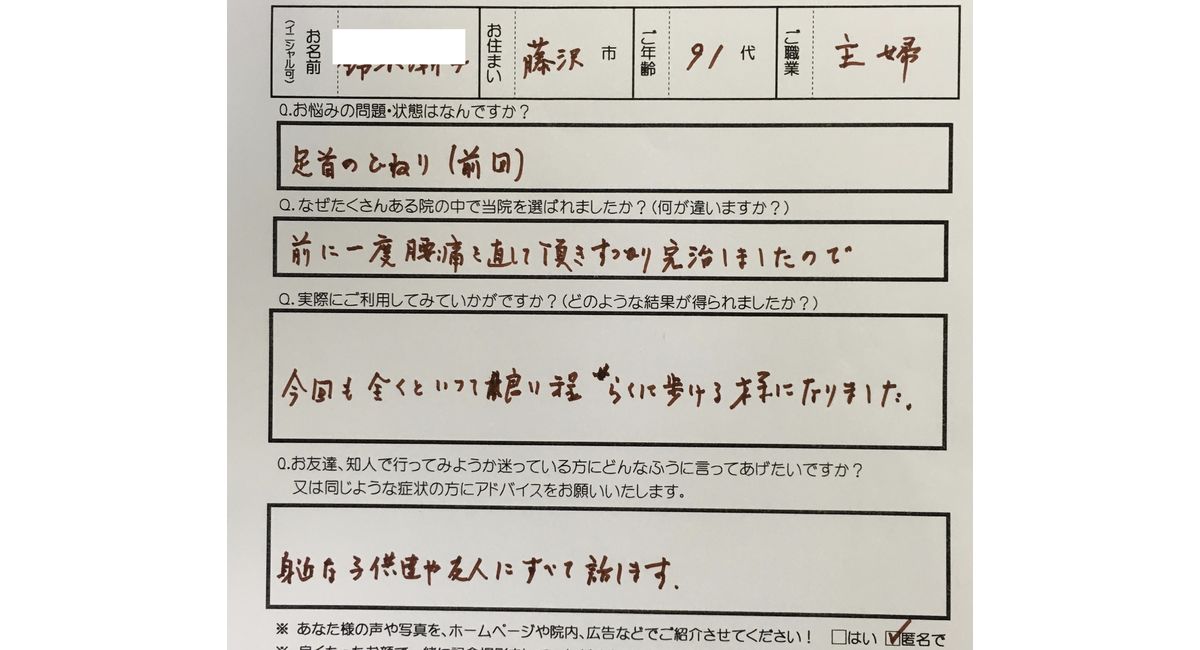 お名前 (イニシャル可) お住まい 藤沢 市 ご年齢 91 代 ご職業 主婦
Q.お悩みの問題・状態はなんですか？
足首のひねり(前回)
Q. なぜたくさんある院の中で当院を選ばれましたか？(何が違いますか？)
前に一度腰痛を直して頂きすっかり完治しましたので
Q. 実際にご利用してみていかがですか？(どのような結果が得られましたか？)
今回も全くといって良い程 らくに歩ける様になりました。
Q.お友達、知人で行ってみようか迷っている方にどんなふうに言ってあげたいですか？
又は同じような症状の方にアドバイスをお願いいたします。
身近な子供達や友人にすべて話します.
※ あなた様の声や写真を、ホームページや院内、広告などでご紹介させてください！ □はい ☑匿名で